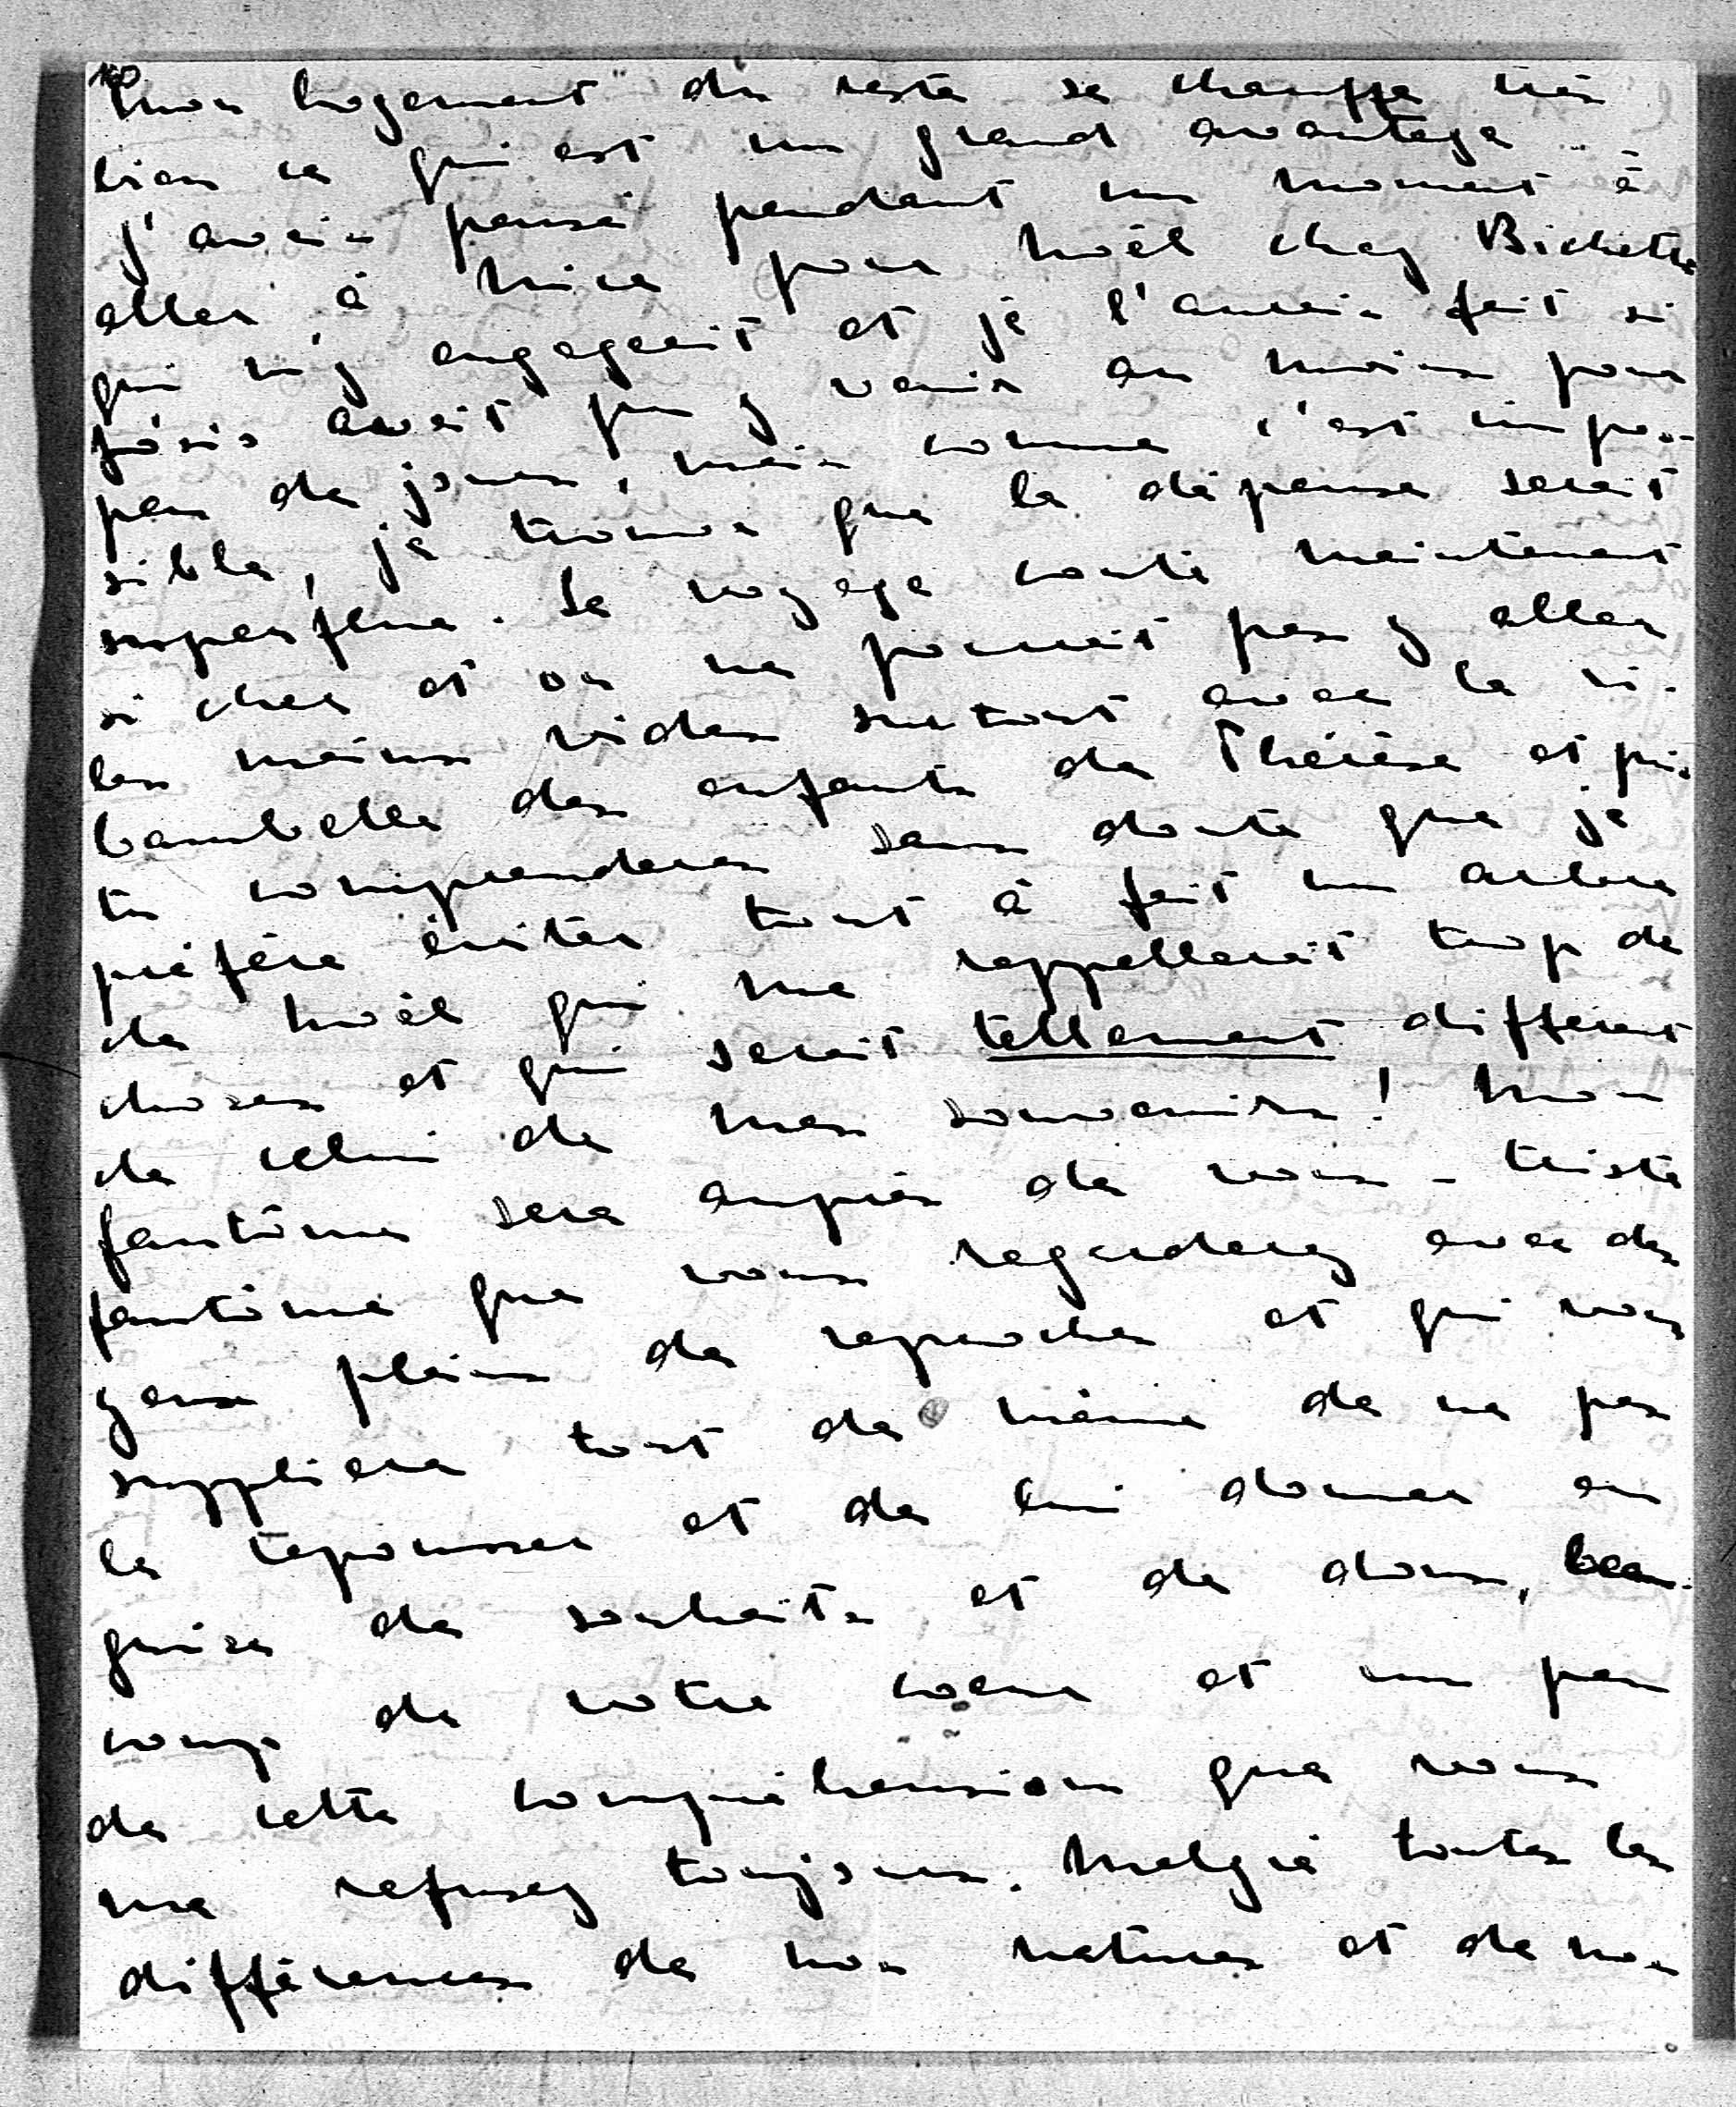 160
mon logement du reste se chauffe très
bien ce qui est un grand avantage.
J'avais pensé pendant un moment à
aller à Nice pour Noël chez Bichette
qui m'y engageait et je l'aurais fait si
avait pu y venir au moins pour
peu de jours, mais comme c'est impos-
sible, je trouve que la dépense serait
superflue. Le voyage coute maintenant
si cher et on ne pourrait pas y aller
les mains vides surtout avec la ri-
bambelle des enfants de Thérèse et puis
tu comprendras sans doute que je
préfère éviter tout à fait un arbre
de Noël qui me rappellerait trop de
choses et qui serait tellement différent
de celui de mes souvenirs ! Mon
fantôme sera auprès de vous - triste
fantôme que vous regarderez avec des
yeux pleins de reproches et qui vous
suppliera tout de même de ne pas
le repousser et de lui donner en
guise de souhaits et de dons, beau-
coup de votre coeur et un peu
de cette compréhension que vous
me refusez toujours. Malgré toutes les
différences de nos natures et de nos